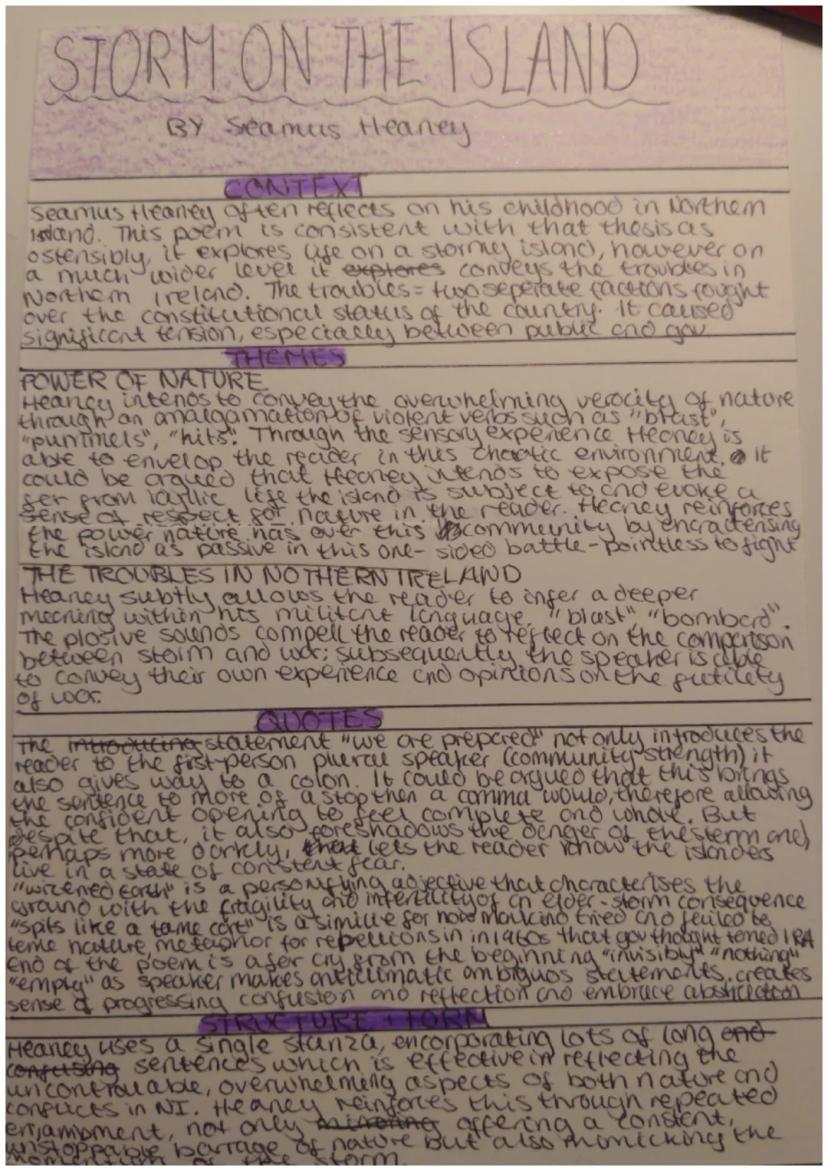 STORM ON THE ISLAND
BY Seamus Heaney
CONTEXT
Seamus Heaney often reflects on his childhood in Northern
Island. This poem is consistent with that thesis as
ostensibly, it explores life on a stormy island, however on
a much wider level it explores conveys the troubles in
Northern Ireland. The troubles = two seperate factions fought
over the constitutional status of the country. It caused
significant tension, especially between public and gov
THEMES
POWER OF NATURE
Heaney intends to convey the overwhelming verocity of nature
through an amalgamation of violent verbs such as "blast",
"pummels", "hits". Through the sensory experience Heaney is
able to envelop the reader in this chaotic environment. It
could be argued that Heaney intends to expose the
far from idyllic life the island is subject to and evoke a
sense of respect for nature in the reader. Heaney reinforces
the power nature has over this community by characterising
the island as passive in this one-sided battle - pointless to fight
THE TROUBLES IN NOTHERN IRELAND
Heaney subtly allows the reader to infer a deeper
meaning within his militant language, "blast" "bombard".
The plosive sounds compell the reader to reflect on the comparison
between storm and war; subsequently the speaker is able
to convey their own experience and opinions on the futility
of war.
QUOTES
The introducing statement "we are prepared" not only introduces the
reader to the first-person plueral speaker (community strength) it
also gives way to a colon. It could be argued that this brings
the sentence to more of a stop then a comma would, therefore allowing
the confident opening to feel complete and whole. But
despite that, it also foreshadows the danger of the storm and,
perhaps more darkly, that lets the reader know the islanders
live in a state of constent fear.
"wizened earth" is a personifying adjective that characterises the
ground with the fragility and infertility of an elder - storm consequence
"spits like a tame cat" is a similie for how mankind tried and failed to
tame nature, metaphor for rebellions in in 1960s that gov thought tamed IRA
End of the poem is a far cry from the beginning "invisibly" "nothing"
"empty" as speaker makes anticlimatic ambiguos statements, creates
sense of progressing confusion and reflection and embrace abstraction
STRUCTURE + FORM
Heaney uses a single stanza, encorporating lots of long and
confusing sentences which is effective in reflecting the
uncontrolable, overwhelming aspects of both nature and
conflicts in NI. Heaney reinforces this through repeated
enjambment, not only mirroring offering a constent,
unstoppable barrage of nature but also mimicking the
momentum of the storm.